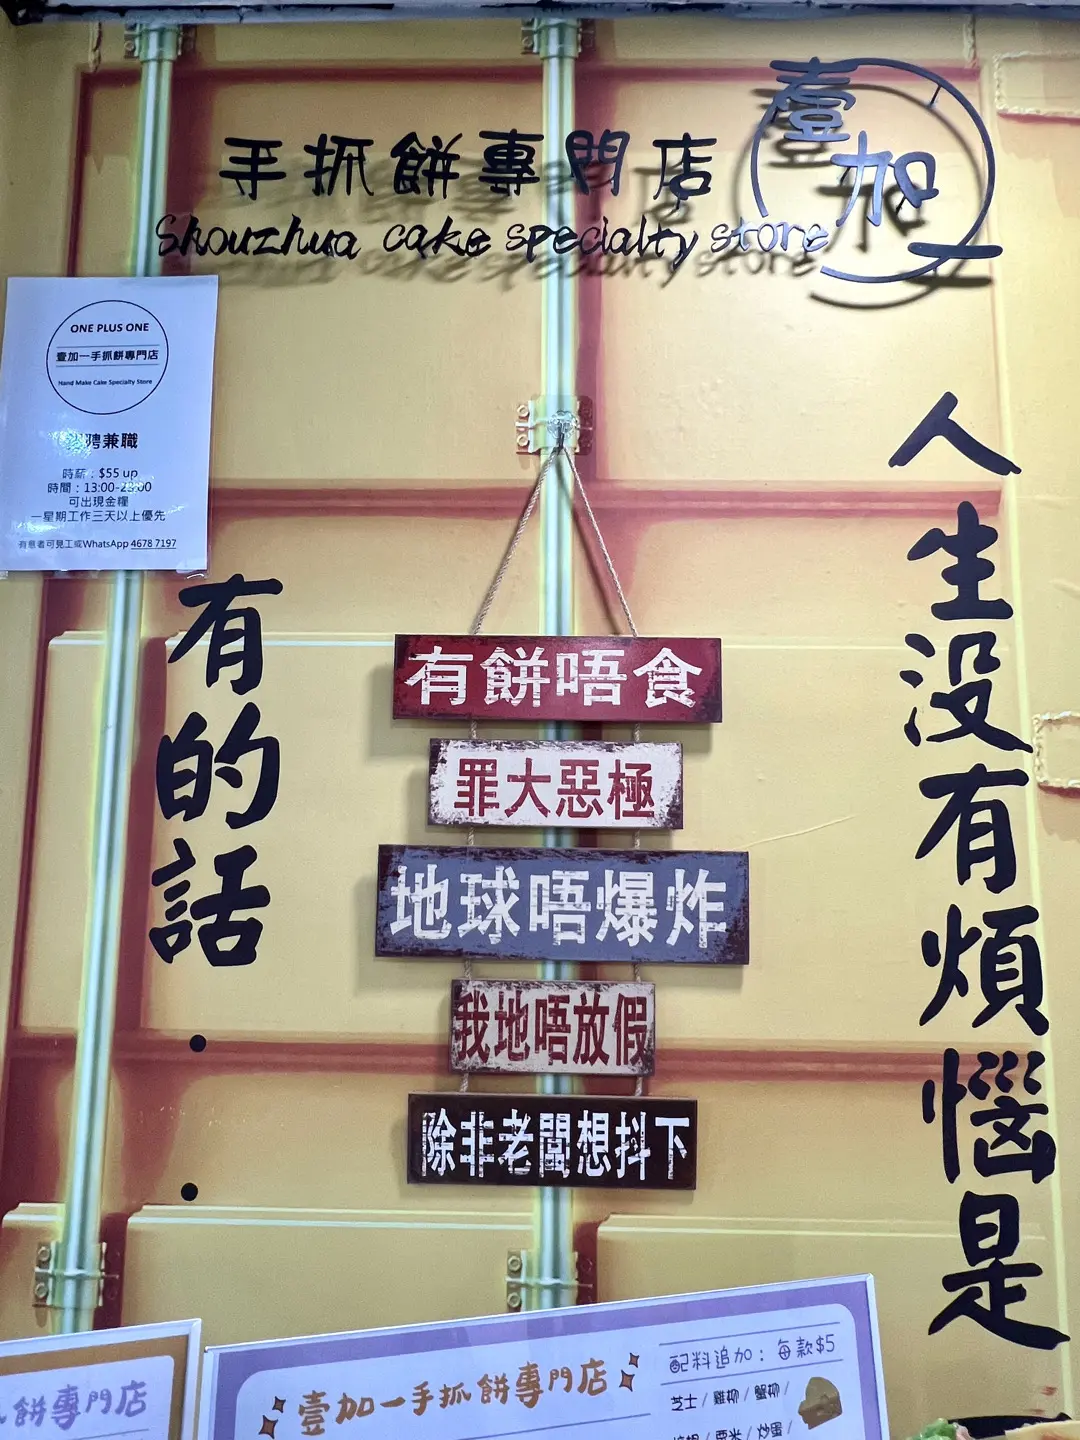 壹加一
手抓餅專門店
Shouzhua cake specialty store
ONE PLUS ONE
壹加一手抓餅專門店
Hand Make Cake Specialty Store
聘兼職
時薪：$55 up
時間：13:00-23:00
可出現金糧
一星期工作三天以上優先
有意者可見工或WhatsApp 4678 7197
人生沒有煩惱是
有的話
有餅唔食
罪大惡極
地球唔爆炸
我地唔放假
除非老闆想抖下
餅專門店
壹加一手抓餅專門店
配料追加：每款$5
芝士 / 雞柳 / 蟹柳 /
/ 粟米 / 炒蛋 /